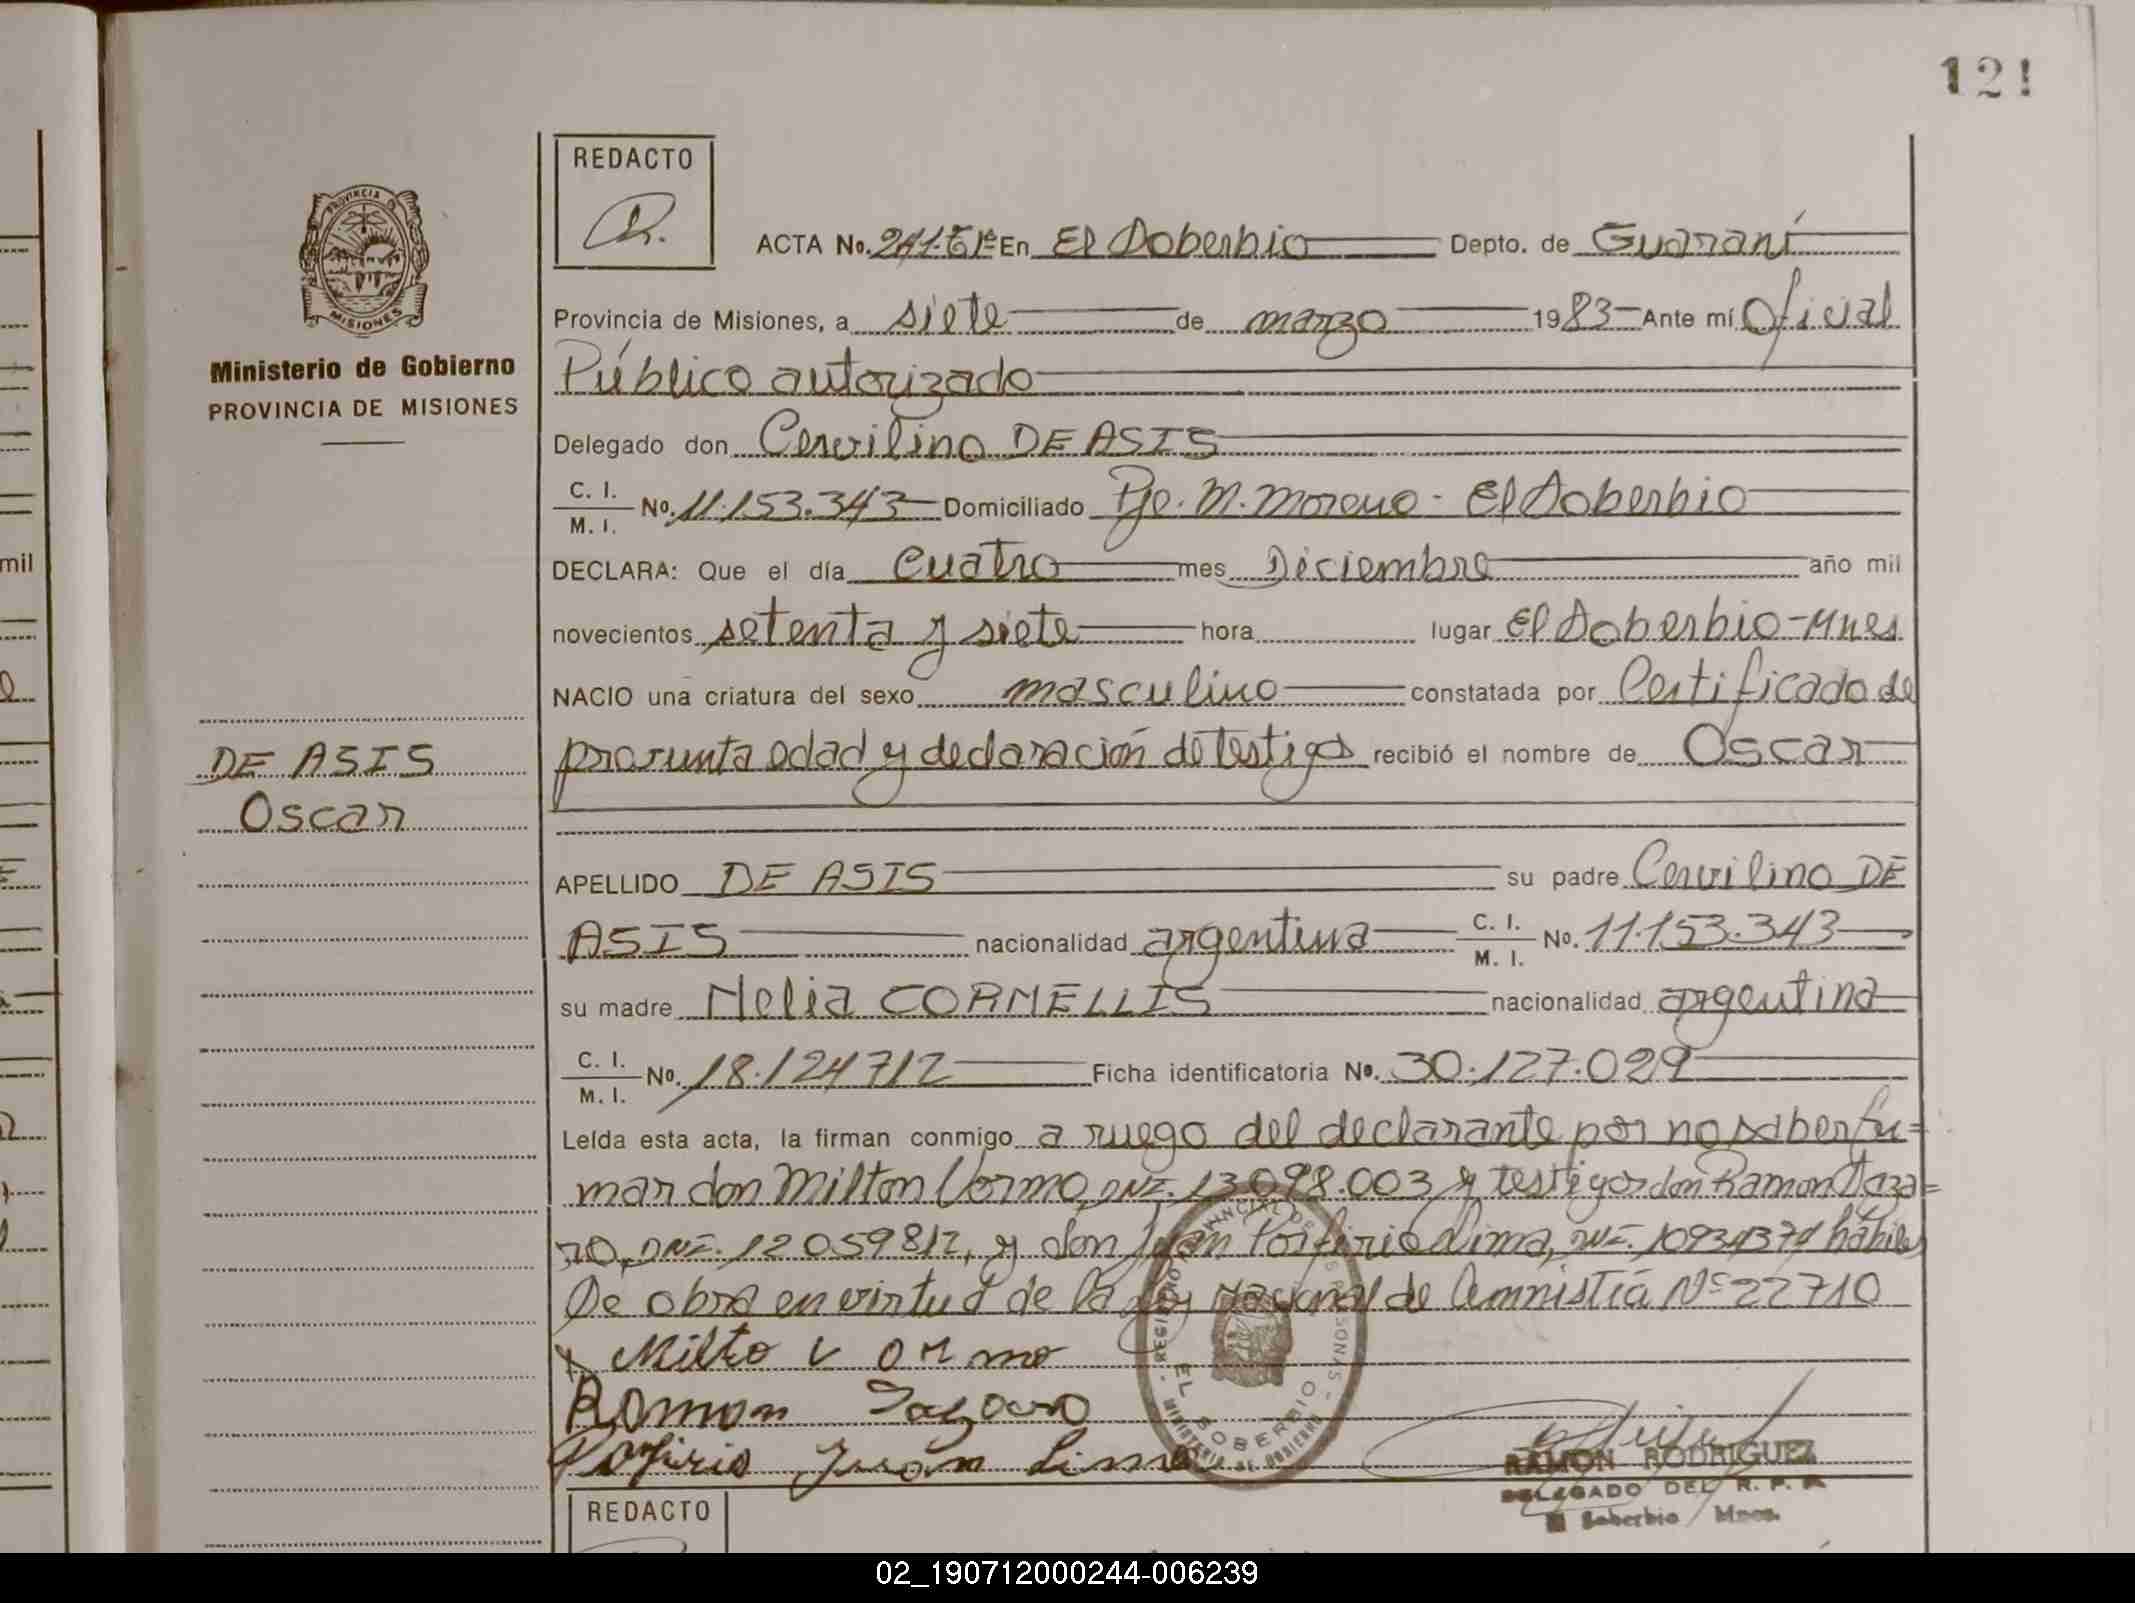 121
REDACTO
PROVINCIA DE
MISIONES
Ministerio de Gobierno
PROVINCIA DE MISIONES
ACTA No. 241-T1ª En El Soberbio Depto. de Guaraní
Provincia de Misiones, a siete de marzo 1983 Ante mí Oficial
Público autorizado
Delegado don Cervilino DE ASIS
C. I. M. I. No. 11.153.343 Domiciliado Pje. M. Moreno - El Soberbio
DECLARA: Que el día cuatro mes Diciembre año mil
novecientos setenta y siete hora lugar El Soberbio-Mnes
NACIO una criatura del sexo masculino constatada por Certificado de
presunta edad y declaración de testigos recibió el nombre de Oscar
DE ASIS
Oscar
APELLIDO DE ASIS su padre Cervilino DE
ASIS nacionalidad argentina C. I. M. I. No. 11.153.343
su madre Nelia CORNELLIS nacionalidad argentina
C. I. M. I. No. 18.124712 Ficha identificatoria No. 30.127.029
Leída esta acta, la firman conmigo a ruego del declarante por no saber fir=
mar don Milton Vormo, DNI. 13098.003 y testigos don Ramon Laza=
ro, DNI. 12059812, y don Juan Porfirio Lima, DNI. 10934374 hábiles
De obra en virtud de la Ley Nacional de Amnistía Nº 22710
Milto Vormo
Ramon Lazaro
Porfirio Juan Lima
REGISTRO PROVINCIAL DE LAS PERSONAS
EL SOBERBIO
MINISTERIO DE GOBIERNO
RAMON RODRIGUEZ
DELEGADO DEL R. P. P.
El Soberbio Mnes.
REDACTO
02_190712000244-006239